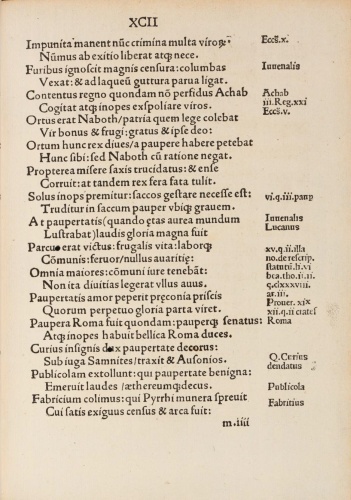 XCII
Impunita manent nūc crimina multa viroƶ: Eccs.x.
Nūmus ab exitio liberat atqƺ nece.
Furibus ignoscit magnis censura: columbas Iuuenalis
Vexat: & ad laqueū guttura parua ligat.
Contentus regno quondam nō perfidus Achab Achab
Cogitat atqƺ inopes exspoliare viros. iii.Reg.xxi
Ortus erat Naboth/patria quem lege colebat Eccs.v.
Vir bonus & frugi: gratus & ipse deo:
Ortum hunc rex diues/a paupere habere petebat
Hunc sibi: sed Naboth cū ratione negat.
Propterea misere saxis trucidatus: & ense
Corruit: at tandem rex fera fata tulit.
Solus inops premitur: saccos gestare necesse est: vi.q.iii.paup
Truditur in saccum pauper vbiqƺ grauem.
At paupertatis (quondam etas aurea mundum Iuuenalis
Lustrabat) laudis gloria magna fuit Lucanus
Parcus erat victus: frugalis vita: laborqƺ xv.q.ii.illa
Cōmunis: feruor/nullus auaritię: no.de rescrip.
Omnia maiores: cōmuni iure tenebāt: statuti.li.vi
Non ita diuitias legerat vllus auus. bca.tho.ii.ii.
Paupertatis amor peperit pręconia priscis q.clxxxviii.
ar.iii.
Quorum perpetuo gloria parta viret. Prouer.xix
xii.q.ii crates
Paupera Roma fuit quondam: pauperqƺ senatus: Roma
Atqƺ inopes habuit bellica Roma duces.
Curius insignis dux paupertate decorus: Q.Curius
Sub iuga Samnites/traxit & Ausonios. dendatus
Publicolam extollunt: qui paupertate benigna:
Emeruit laudes/æthereumqƺ decus. Publicola
Fabricium colimus: qui Pyrrhi munera spreuit Fabritius
Cui satis exiguus census & arca fuit:
m.iiii